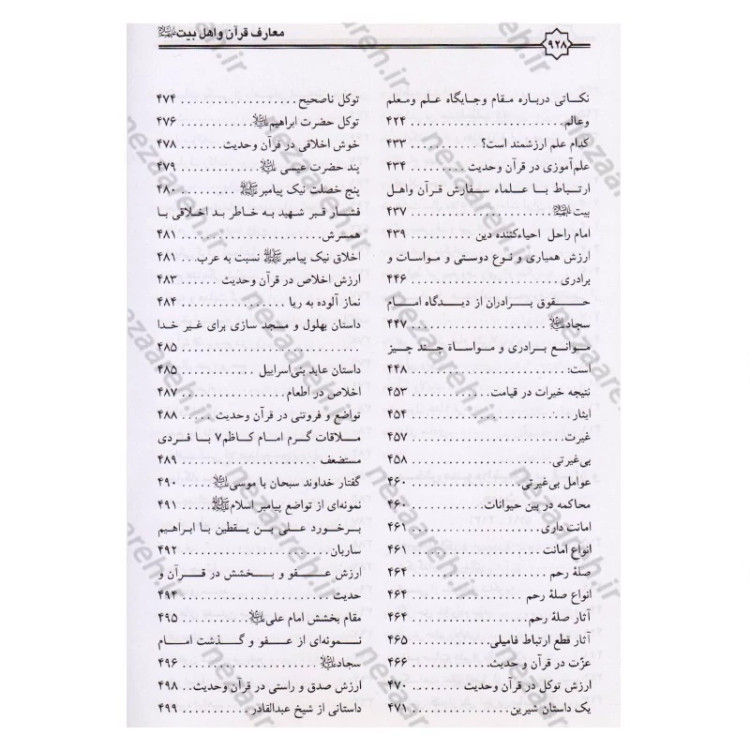 معارف قرآن و اهل بیت
۹۲۸
نکاتی درباره مقام وجایگاه علم ومعلم
وعالم ........ ۴۲۴
کدام علم ارزشمند است؟ ........ ۴۳۳
علم‌آموزی در قرآن وحدیث ........ ۴۳۴
ارتباط با علماء سفارش قرآن واهل
بیت ........ ۴۳۷
امام راحل احیاءکننده دین ........ ۴۳۹
ارزش همیاری و نوع دوستی و مواسات و
برادری ........ ۴۴۶
حقوق برادران از دیدگاه امام
سجاد ........ ۴۴۷
موانع برادری و مواساة چند چیز
است: ........ ۴۴۸
نتیجه خیرات در قیامت ........ ۴۵۳
ایثار ........ ۴۵۴
غیرت ........ ۴۵۷
بی‌غیرتی ........ ۴۵۸
عوامل بی‌غیرتی ........ ۴۶۰
محاکمه در بین حیوانات ........ ۴۶۰
امانت داری ........ ۴۶۱
انواع امانت ........ ۴۶۱
صلهٔ رحم ........ ۴۶۴
انواع صلهٔ رحم ........ ۴۶۴
آثار صلهٔ رحم ........ ۴۶۴
آثار قطع ارتباط فامیلی ........ ۴۶۵
عزّت در قرآن و حدیث ........ ۴۶۶
ارزش توکل در قرآن وحدیث ........ ۴۷۰
یک داستان شیرین ........ ۴۷۱
توکل ناصحیح ........ ۴۷۴
توکل حضرت ابراهیم ........ ۴۷۶
خوش اخلاقی در قرآن وحدیث ........ ۴۷۸
پند حضرت عیسی ........ ۴۷۹
پنج خصلت نیک پیامبر ........ ۴۸۰
فشار قبر شهید به خاطر بد اخلاقی با
همسرش ........ ۴۸۱
اخلاق نیک پیامبر نسبت به عرب ... ۴۸۱
ارزش اخلاص در قرآن وحدیث ........ ۴۸۳
نماز آلوده به ریا ........ ۴۸۴
داستان بهلول و مسجد سازی برای غیر خدا
........ ۴۸۵
داستان عابد بنی‌اسراییل ........ ۴۸۵
اخلاص در اطعام ........ ۴۸۷
تواضع و فروتنی در قرآن وحدیث ..... ۴۸۸
ملاقات گرم امام کاظم۷ با فردی
مستضعف ........ ۴۸۹
گفتار خداوند سبحان با موسی ..... ۴۹۰
نمونه‌ای از تواضع پیامبر اسلام ..... ۴۹۱
برخورد علی بن یقطین با ابراهیم
ساربان ........ ۴۹۲
ارزش عفو و بخشش در قرآن و
حدیث ........ ۴۹۴
مقام بخشش امام علی ........ ۴۹۵
نمونه‌ای از عفو و گذشت امام
سجاد ........ ۴۹۶
ارزش صدق و راستی در قرآن وحدیث .. ۴۹۸
داستانی از شیخ عبدالقادر ........ ۴۹۹
nezaareh.ir